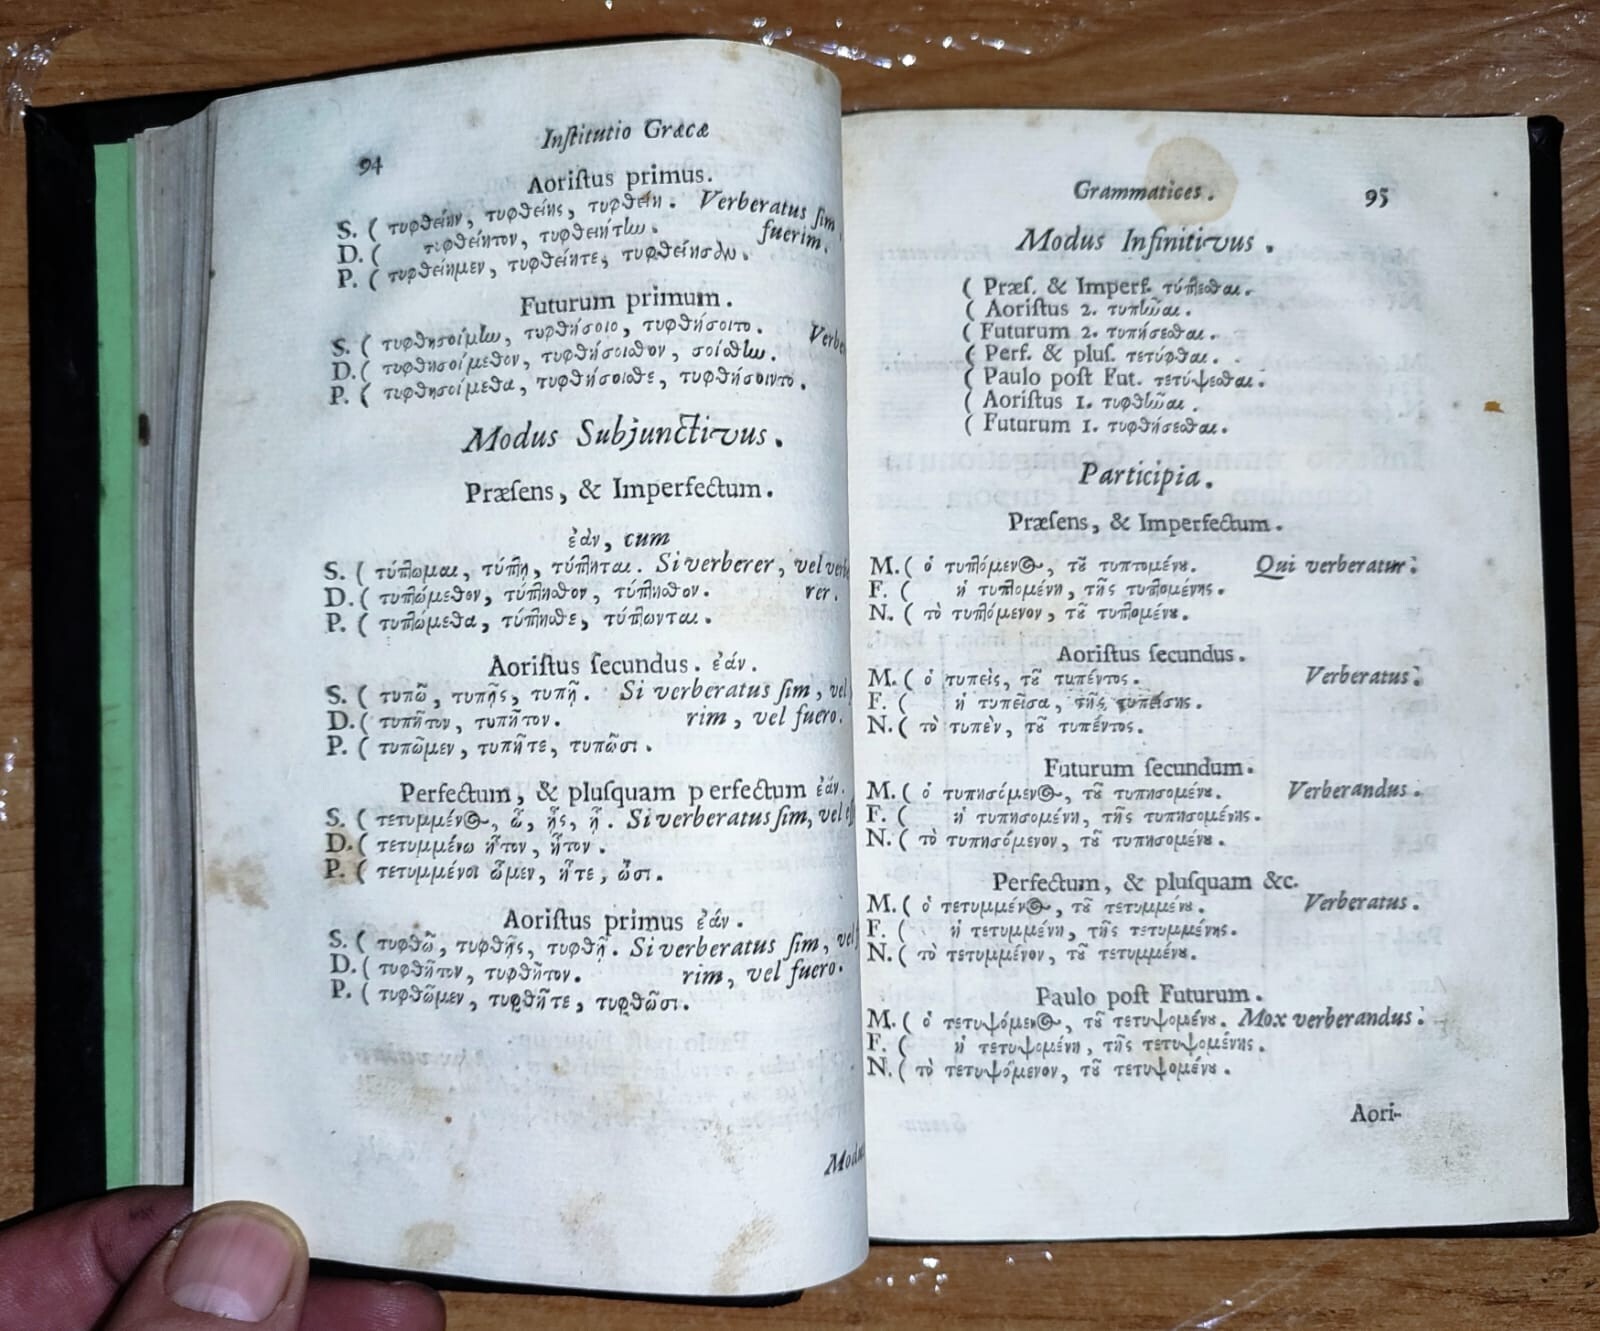 94
Institutio Græcæ
Aoriſtus primus.
S. ( τυφθείην, τυφθείης, τυφθείη. Verberatus ſim,
fuerim.
D. ( τυφθείητον, τυφθειήτην.
P. ( τυφθείημεν, τυφθείητε, τυφθείησαν.
Futurum primum.
S. ( τυφθησοίμην, τυφθήσοιο, τυφθήσοιτο.
D. ( τυφθησοίμεθον, τυφθήσοισθον, σοίσθην.
P. ( τυφθησοίμεθα, τυφθήσοισθε, τυφθήσοιντο.
Modus Subjunctivus.
Præſens, & Imperfectum.
ἐὰν, cum
S. ( τύπτωμαι, τύπτῃ, τύπτηται. Si verberer, vel
rer.
D. ( τυπτώμεθον, τύπτησθον, τύπτησθον.
P. ( τυπτώμεθα, τύπτησθε, τύπτωνται.
Aoriſtus ſecundus. ἐάν.
S. ( τυπῶ, τυπῇς, τυπῇ. Si verberatus ſim, vel
D. ( τυπῆτον, τυπῆτον. rim, vel fuero.
P. ( τυπῶμεν, τυπῆτε, τυπῶσι.
Perfectum, & pluſquam perfectum ἐάν.
S. ( τετυμμένος, ὦ, ᾖς, ᾖ. Si verberatus ſim, vel
D. ( τετυμμένω ἦτον, ἦτον.
P. ( τετυμμένοι ὦμεν, ἦτε, ὦσι.
Aoriſtus primus ἐάν.
S. ( τυφθῶ, τυφθῇς, τυφθῇ. Si verberatus ſim, vel
D. ( τυφθῆτον, τυφθῆτον. rim, vel fuero.
P. ( τυφθῶμεν, τυφθῆτε, τυφθῶσι.
Grammatices. 95
Modus Infinitivus.
( Præſ. & Imperf. τύπτεσθαι.
( Aoriſtus 2. τυπῆναι.
( Futurum 2. τυπήσεσθαι.
( Perf. & pluſ. τετύφθαι.
( Paulo poſt Fut. τετύψεσθαι.
( Aoriſtus 1. τυφθῆναι.
( Futurum 1. τυφθήσεσθαι.
Participia.
Præſens, & Imperfectum.
M. ( ὁ τυπτόμενος, τοῦ τυπτομένου. Qui verberatur.
F. ( ἡ τυπτομένη, τῆς τυπτομένης.
N. ( τὸ τυπτόμενον, τοῦ τυπτομένου.
Aoriſtus ſecundus.
M. ( ὁ τυπεὶς, τοῦ τυπέντος. Verberatus.
F. ( ἡ τυπεῖσα, τῆς τυπείσης.
N. ( τὸ τυπὲν, τοῦ τυπέντος.
Futurum ſecundum.
M. ( ὁ τυπησόμενος, τοῦ τυπησομένου. Verberandus.
F. ( ἡ τυπησομένη, τῆς τυπησομένης.
N. ( τὸ τυπησόμενον, τοῦ τυπησομένου.
Perfectum, & pluſquam &c.
M. ( ὁ τετυμμένος, τοῦ τετυμμένου. Verberatus.
F. ( ἡ τετυμμένη, τῆς τετυμμένης.
N. ( τὸ τετυμμένον, τοῦ τετυμμένου.
Paulo poſt Futurum.
M. ( ὁ τετυψόμενος, τοῦ τετυψομένου. Mox verberandus.
F. ( ἡ τετυψομένη, τῆς τετυψομένης.
N. ( τὸ τετυψόμενον, τοῦ τετυψομένου.
Aori-